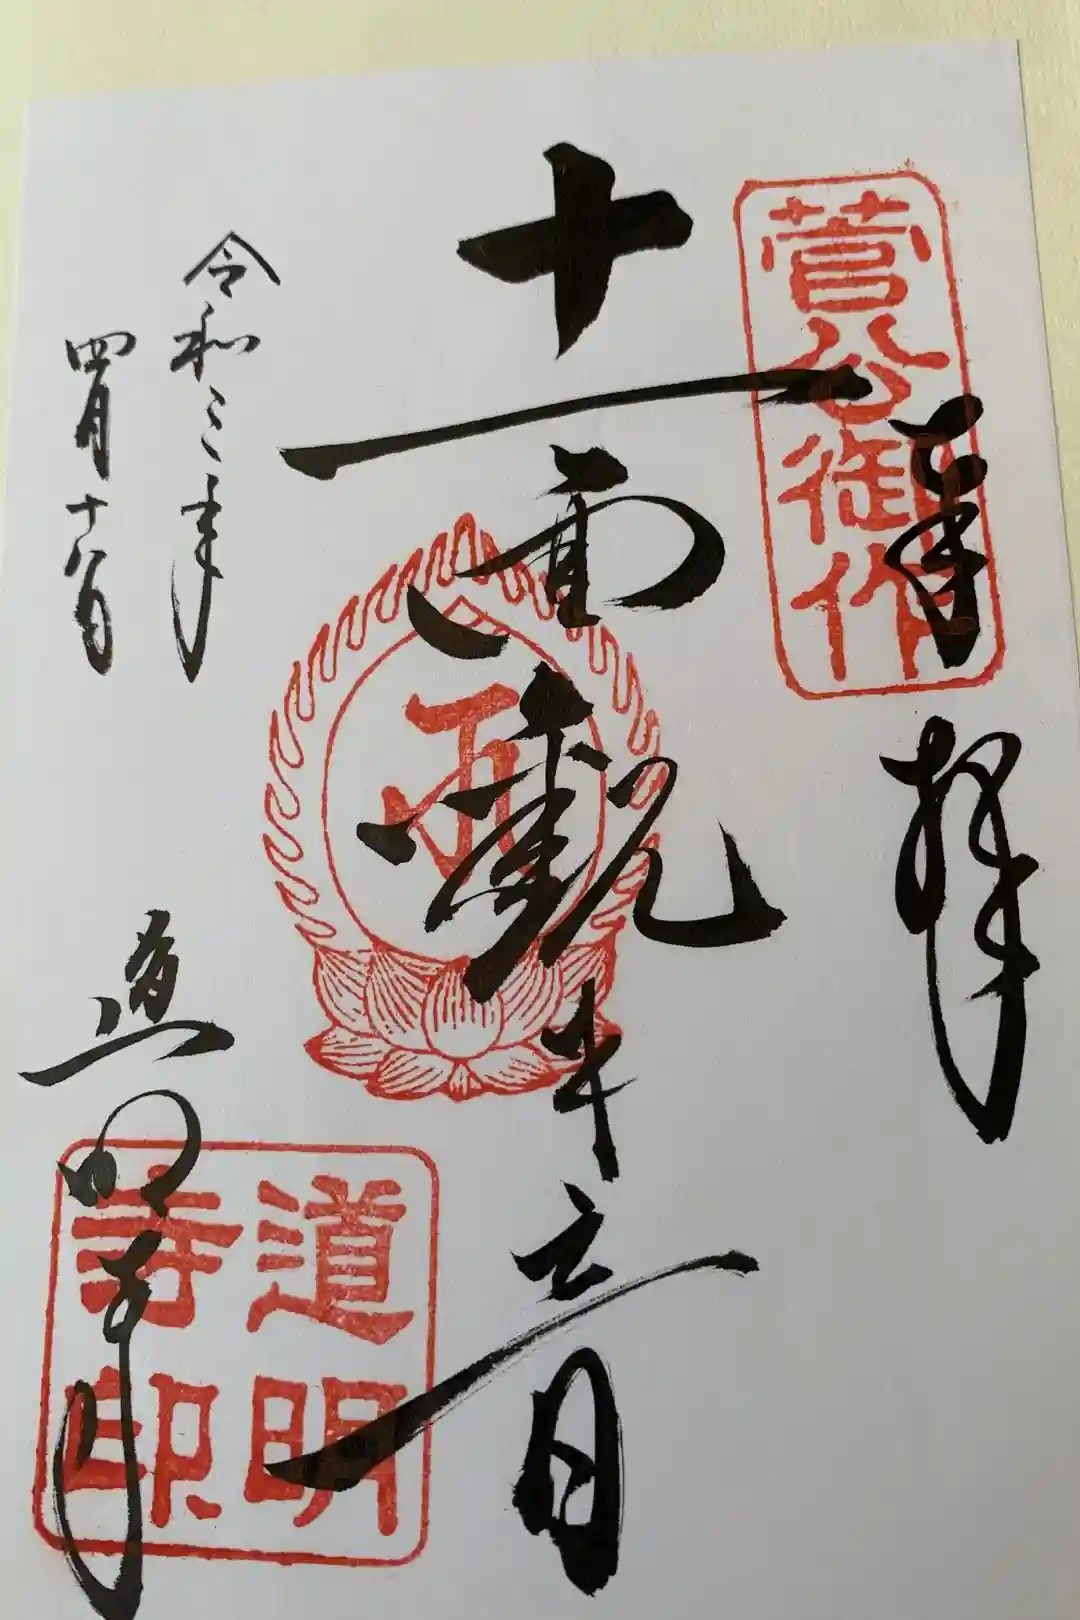 菅公御作
奉拝
十一面観世音
令和三年
四月十八日
道明寺
道明
寺印